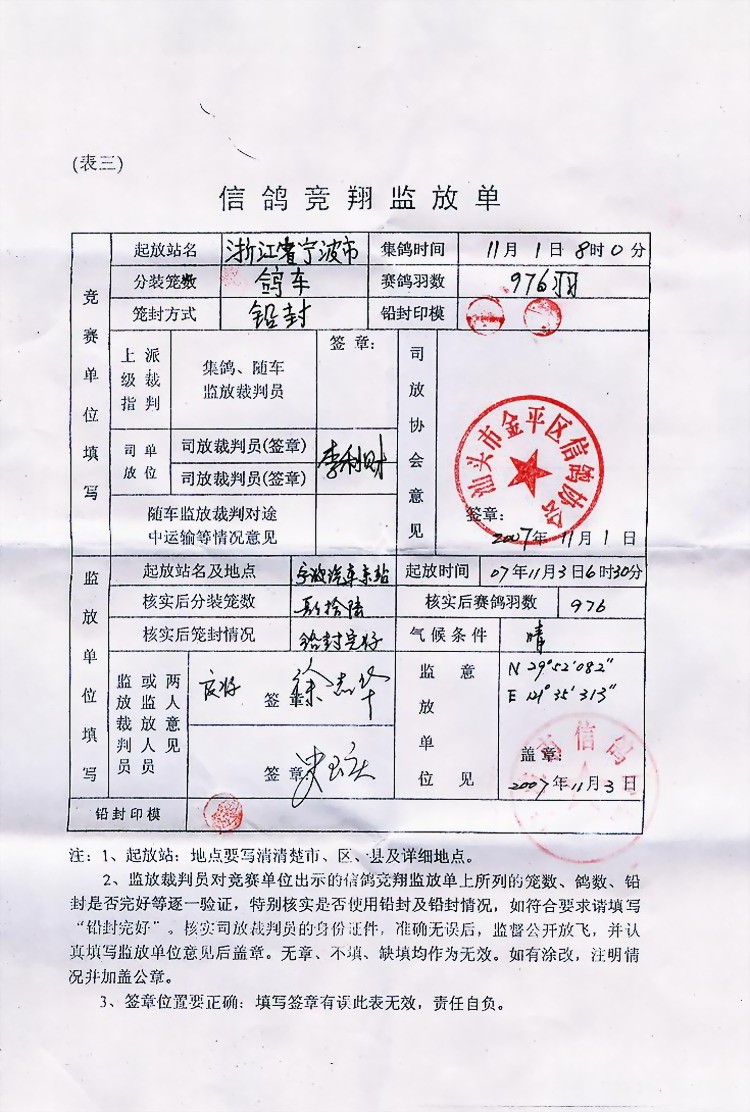 (表三)
信鸽竞翔监放单
竞赛单位填写
起放站名 浙江省宁波市 集鸽时间 11月1日8时0分
分装笼数 鸽车 赛鸽羽数 976羽
笼封方式 铅封 铅封印模
上级指派裁判 集鸽、随车监放裁判员 签章:
司放单位 司放裁判员(签章) 李利财
司放裁判员(签章)
随车监放裁判对途中运输等情况意见
司放协会意见
汕头市金平区信鸽协会
签章:
2007年11月1日
监放单位填写
起放站名及地点 宁波汽车东站 起放时间 07年11月3日6时30分
核实后分装笼数 核实后赛鸽羽数 976
核实后笼封情况 铅封完好 气候条件 晴
监放裁判员或监放人员两人意见 良好 签章
签章
监放单位意见
N 29°52′082″
E 121°35′313″
信鸽
盖章:
2007年11月3日
铅封印模
注：1、起放站：地点要写清清楚市、区、县及详细地点。
2、监放裁判员对竞赛单位出示的信鸽竞翔监放单上所列的笼数、鸽数、铅
封是否完好等逐一验证，特别核实是否使用铅封及铅封情况，如符合要求请填写
“铅封完好”。核实司放裁判员的身份证件，准确无误后，监督公开放飞，并认
真填写监放单位意见后盖章。无章、不填、缺填均作为无效。如有涂改，注明情
况并加盖公章。
3、签章位置要正确：填写签章有误此表无效，责任自负。